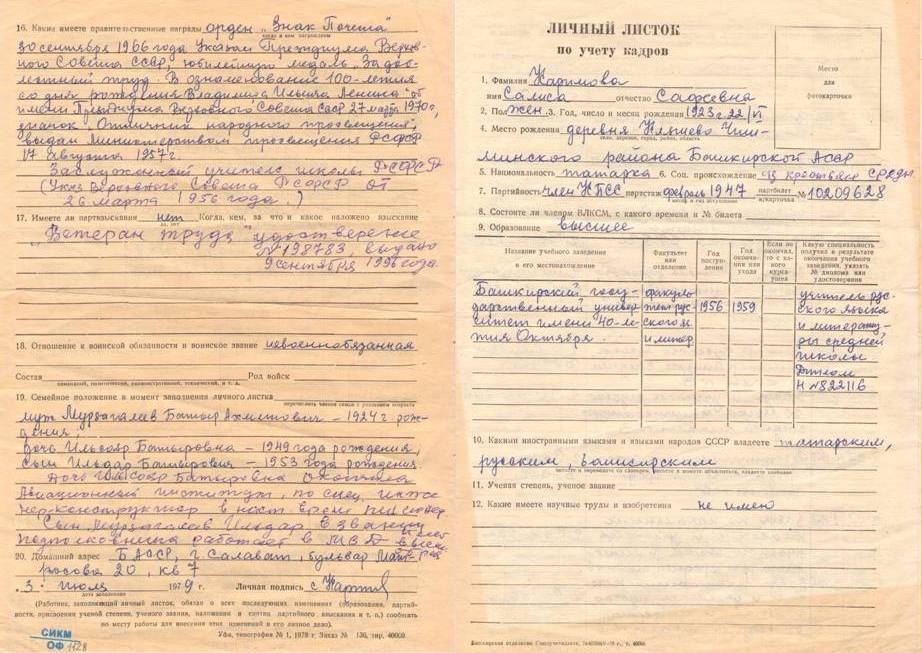 16. Какие имеете правительственные награды орден „Знак Почета“
когда и кем награждены
30 сентября 1966 года Указом Президиума Верхов-
ного Совета СССР, юбилейную медаль „За доб-
лестный труд. В ознаменование 100-летия
со дня рождения Владимира Ильича Ленина“ от
имени Президиума Верховного Совета СССР 27 марта 1970 г,
значок „Отличник народного просвещения“,
выдан Министерством просвещения РСФСР
17 августа 1957 г.
Заслуженный учитель школы РСФСР
(Указ Верховного Совета РСФСР от
26 марта 1956 года.)
17. Имеете ли партвзыскания нет Когда, кем, за что и какое наложено взыскание
да, нет
„Ветеран труда“ удостверение
№198783, выдано
9 сентября 1996 года.
18. Отношение к воинской обязанности и воинское звание невоеннообязанная
Состав Род войск
командный, политический, административный, технический, и т. д.
19. Семейное положение в момент заполнения личного листка
перечислить членов семьи с указанием возраста
муж Мурзагалеев Батыр Ахметович – 1924 г. рож-
дения
дочь Ильсояр Батыровна – 1949 года рождения,
сын Ильдар Батырович – 1953 года рождения
дочь Ильсояр Батыровна окончила
Авиационный институт, по спец. инже
нер-конструктор в наст. время
Сын Мурзагалеев Ильдар в звании
подполковника работает в МВД
20. Домашний адрес БАССР, г Салават, бульвар Мат-
росова 20, кв 7
„3“ июля 1979 г. Личная подпись
дата заполнения
(Работник, заполняющий личный листок, обязан о всех последующих изменениях (образовании, партий-
ности, присвоении ученой степени, ученого звания, наложении и снятии партийного взыскания и т. п.) сообщить
по месту работы для внесения этих изменений в его личное дело).
Уфа, типография № 1, 1978 г. Заказ № 136, тир. 40000
СИКМ
ОФ 1128
ЛИЧНЫЙ ЛИСТОК
по учету кадров
Место
для
фотокарточки
1. Фамилия Каримова
имя Салиса отчество Сафеевна
2. Пол жен. 3. Год, число и месяц рождения 1923 г. 22/VI
4. Место рождения деревня Чиш-
село, деревня, город, район, область
минского района Башкирской АССР
5. Национальность татарка 6. Соц. происхождение из крестьян среды
7. Партийность член КПСС партстаж февраль 1947 партбилет
к/карточка №10209628
8. Состоите ли членом ВЛКСМ, с какого времени и № билета
9. Образование высшее
Название учебного заведения
и его местонахождение
Факультет
или
отделение
Год
поступ-
ления
Год
оконча-
ния или
ухода
Если не
окончил,
то с ка-
кого
курса
ушел
Какую специальность
получил в результате
окончания учебного
заведения, указать
№ диплома или
удостоверения
Башкирский госу-
дарственный универ-
ситет имени 40-ле-
тия Октября.
факуль
тет рус-
ского яз.
и литер.
1956
1959
учитель рус-
ского языка
и литерату-
ры средней
школы
Диплом
Н №822116
10. Какими иностранными языками и языками народов СССР владеете татарским,
русским, башкирским
читаете и переводите со словарем, читаете и можете объясняться, владеете свободно
11. Ученая степень, ученое звание
12. Какие имеете научные труды и изобретения не имею